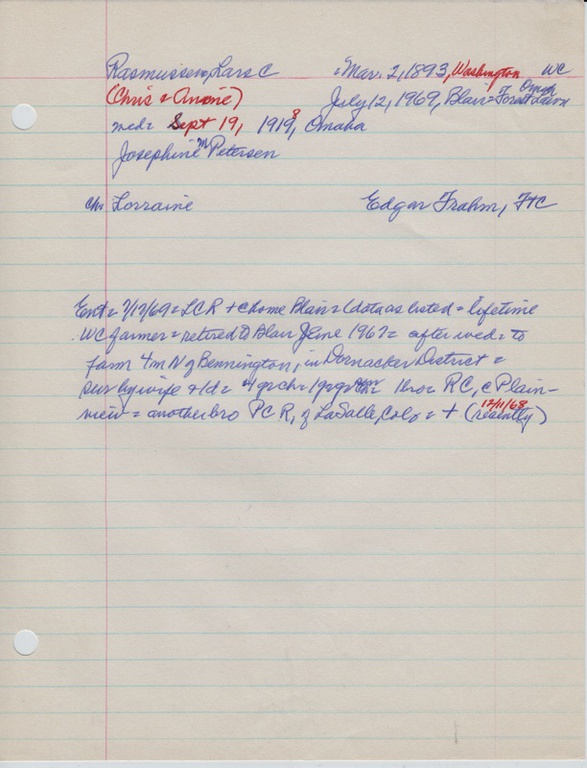 Rasmussen, Lars C = Mar. 2, 1893, Washington WC
(Chris & Anone) July 12, 1969, Blair = Forest Lawn Omah
med = Sept 19, 1918, Omaha
Josephine M Petersen
ch Lorraine Edgar Frahm, FtC
Ent = 7/17/69 = LCR + c home Blair = (data as listed = lifetime
WC farmer = retired to Blair June 1967 = after wed = to
farm 4m N of Bennington, in Dornacker District =
sur by wife & 1d = 4 grch = 1 bro = RC, c Plain-
view = another bro PCR, of LaSalle, Colo = + (recently)
12/11/68